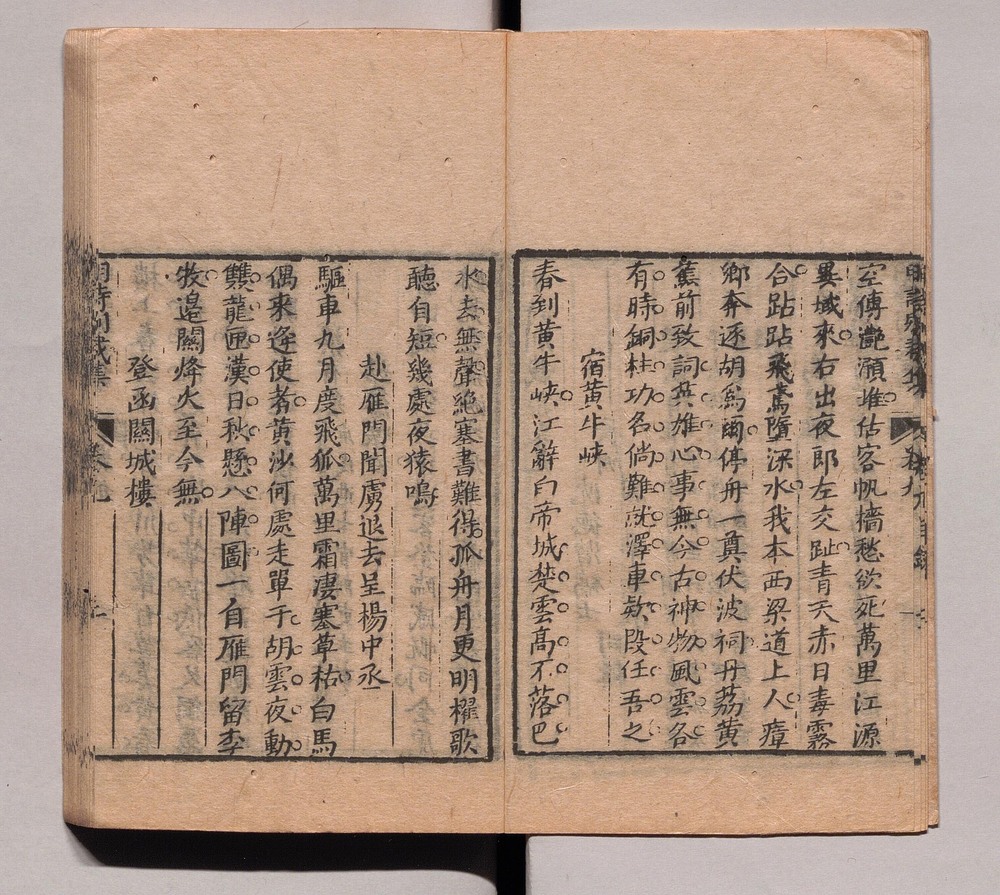 空傳灩澦堆估客帆檣愁欲死萬里江源
異域來右出夜郎左交趾青天赤日毒霧
合跕跕飛鳶墮深水我本西梁道上人瘴
鄉奔逐胡爲爾停舟一奠伏波祠丹荔黃
蕉前致詞英雄心事無今古神物風雲各
有時銅柱功名倘難就澤車欵段任吾之
宿黃牛峽
春到黃牛峽江辭白帝城楚雲高不落巴
水去無聲絶塞書難得孤舟月更明櫂歌
聽自短幾處夜猿鳴
赴雁門聞虜退去呈楊中丞
驅車九月度飛狐萬里霜凄塞草枯白馬
偶來逢使者黃沙何處走單于胡雲夜動
雙龍匣漢日秋懸八陣圖一自雁門留李
牧邉關烽火至今無
登函關城樓